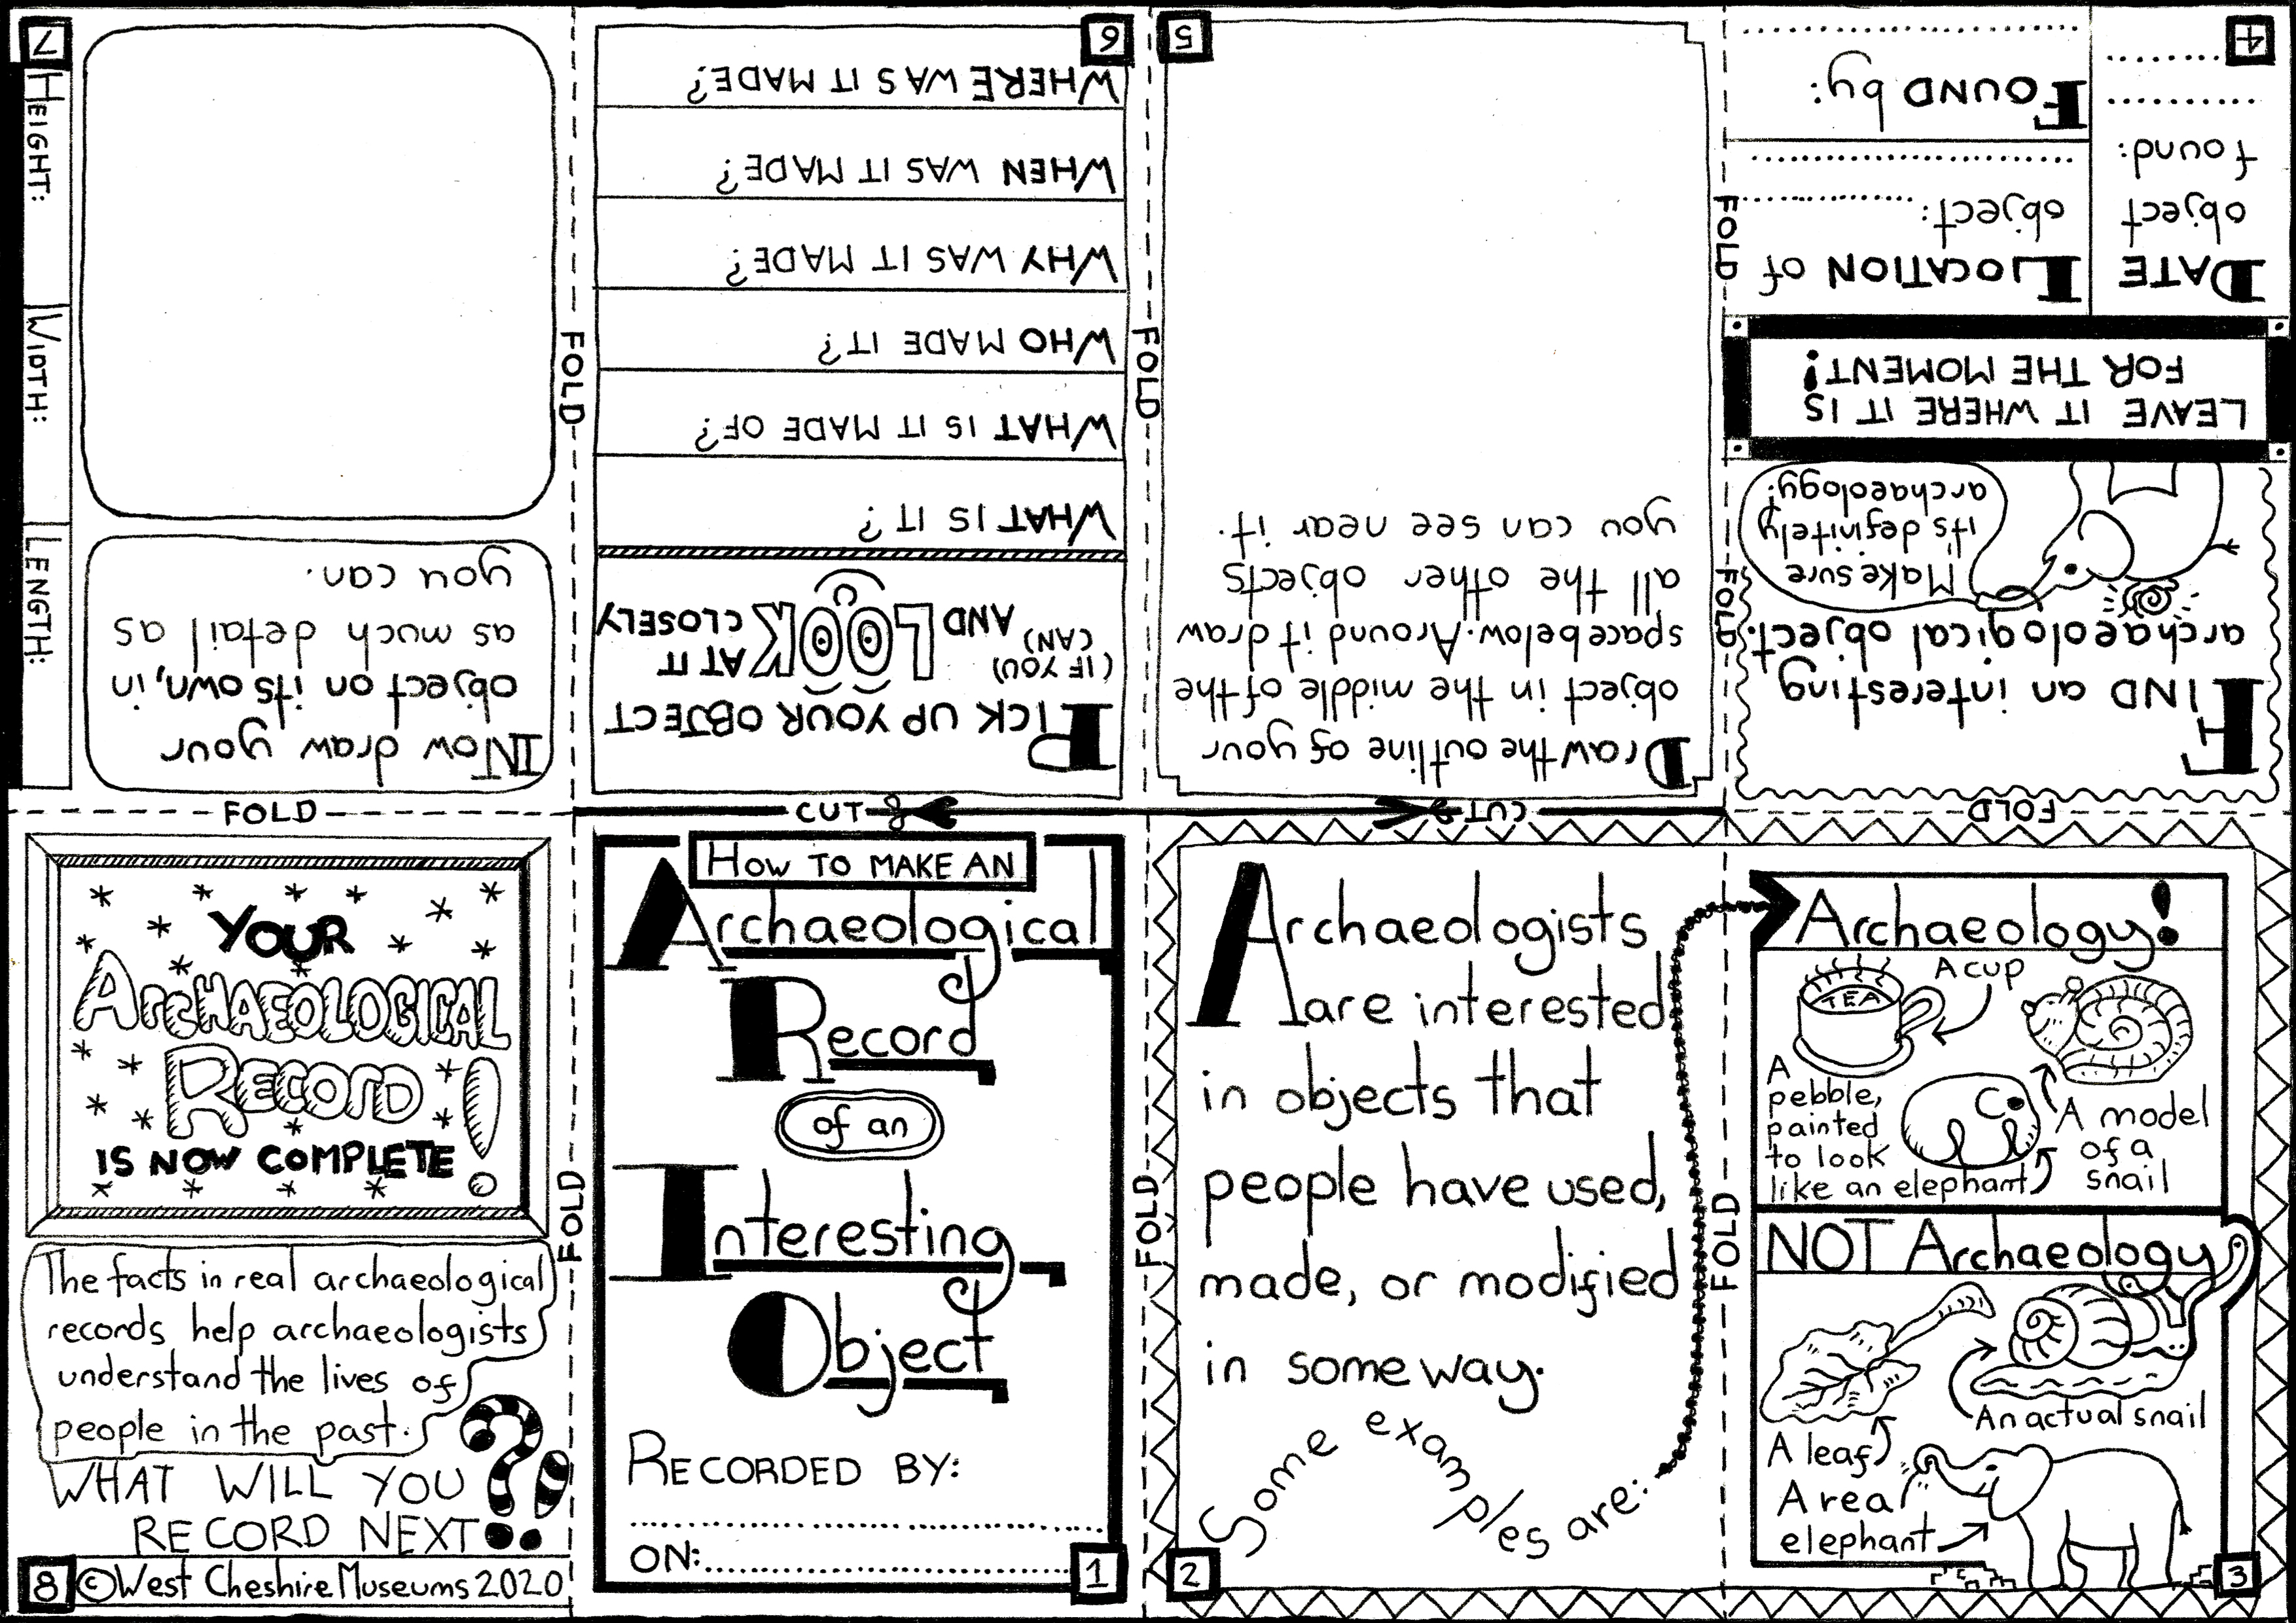 HOW TO MAKE AN
Archaeological
Record
of an
Interesting
Object
RECORDED BY:
ON:
1
Archaeologists
are interested
in objects that
people have used,
made, or modified
in some way.
Some examples are:
2
Archaeology!
A CUP
TEA
A
pebble,
painted
to look
like an elephant
A model
of a
snail
NOT Archaeology
An actual snail
A leaf
A real
elephant
3
FIND an interesting
archaeological object.
Make sure
it's definitely
archaeology!
LEAVE IT WHERE IT IS
FOR THE MOMENT!
DATE
object
found:
LOCATION of
object:
FOUND by:
4
Draw the outline of your
object in the middle of the
space below. Around it draw
all the other objects
you can see near it.
5
PICK UP YOUR OBJECT
(IF YOU
CAN)
AND LOOK AT IT
CLOSELY
WHAT IS IT?
WHAT IS IT MADE OF?
WHO MADE IT?
WHY WAS IT MADE?
WHEN WAS IT MADE?
WHERE WAS IT MADE?
6
Now draw your
object on its own, in
as much detail as
you can.
LENGTH:
WIDTH:
HEIGHT:
7
YOUR
ARCHAEOLOGICAL
RECORD!
IS NOW COMPLETE
The facts in real archaeological
records help archaeologists
understand the lives of
people in the past.
WHAT WILL YOU
RECORD NEXT?!
8
©West Cheshire Museums 2020
FOLD
FOLD
FOLD
FOLD
FOLD
FOLD
FOLD
FOLD
FOLD
CUT
CUT